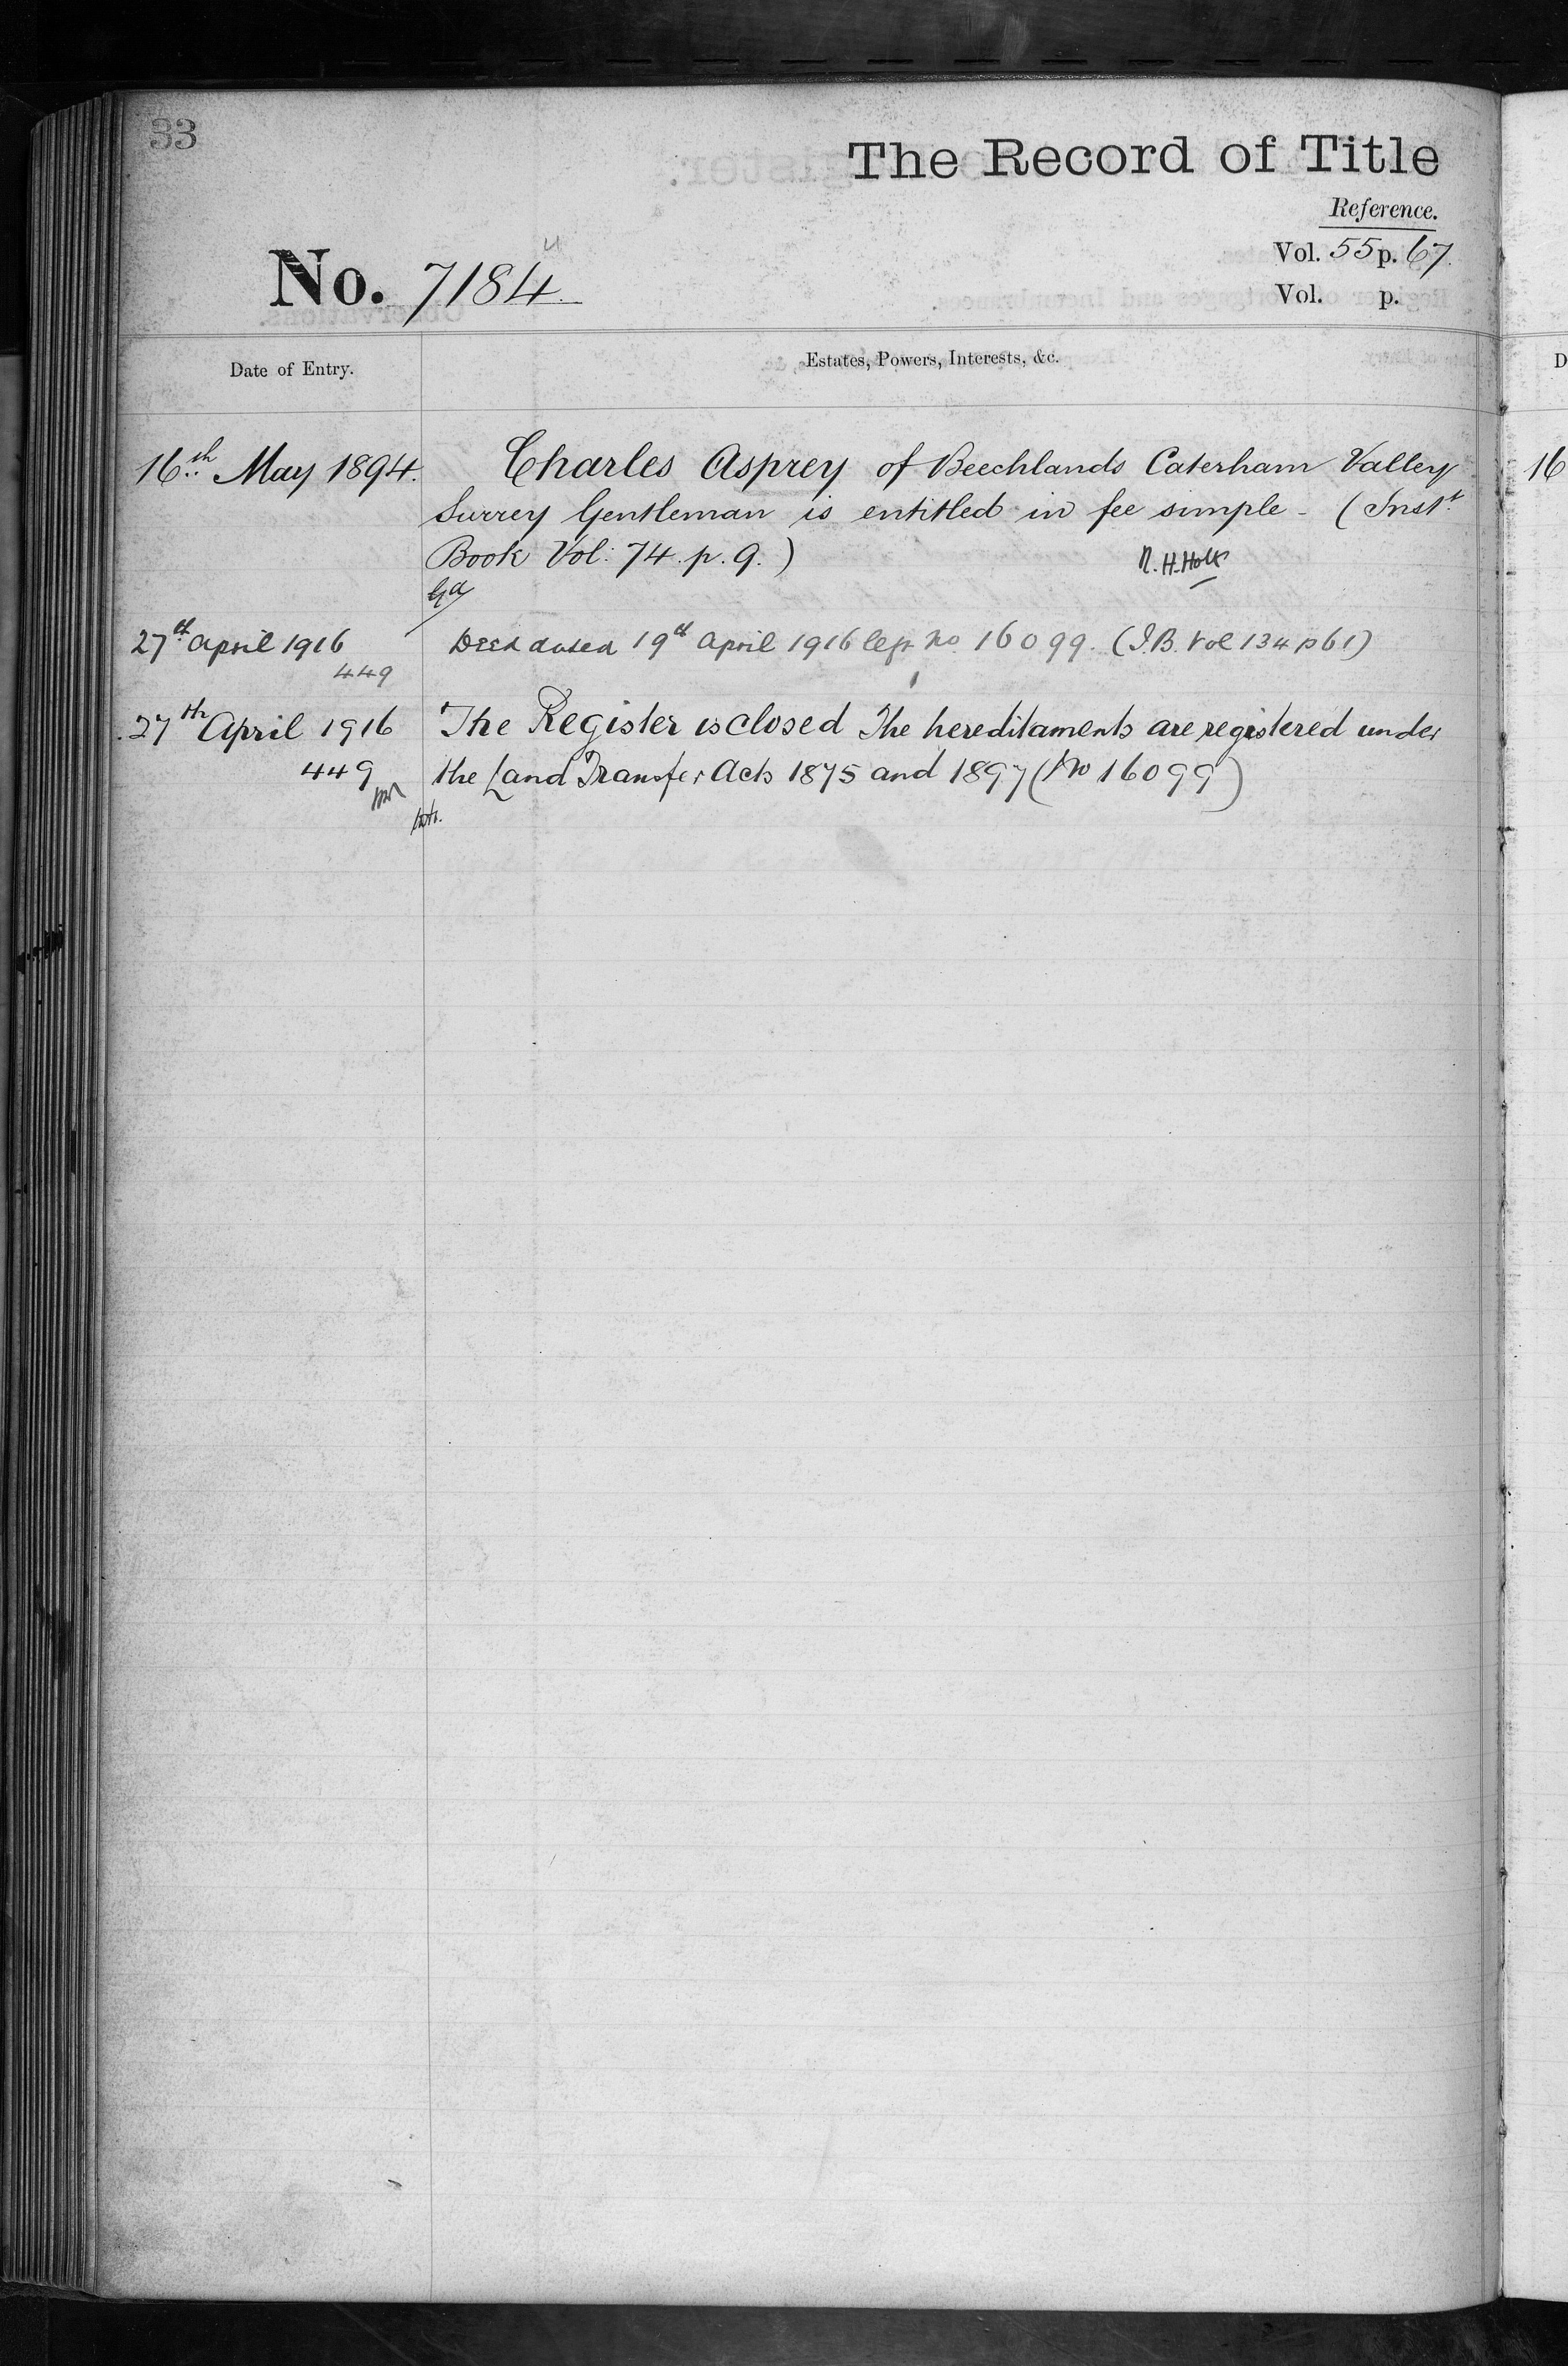 33
The Record of Title
Reference.
Vol. 55 p. 67.
No. 7184.
Vol. p.
Date of Entry.
Estates, Powers, Interests, &c.
16th May 1894.
Charles Asprey of Beechlands Caterham Valley
Surrey Gentleman is entitled in fee simple - (Inst.
Book Vol: 74. p. 9.)
R. H. Holt
27th April 1916
449
Deed dated 19th April 1916 No. 16099. (I.B. Vol 134 p 61)
27th April 1916
449
The Register is closed The hereditaments are registered under
the Land Transfer Acts 1875 and 1897 (No 16099)
D
16